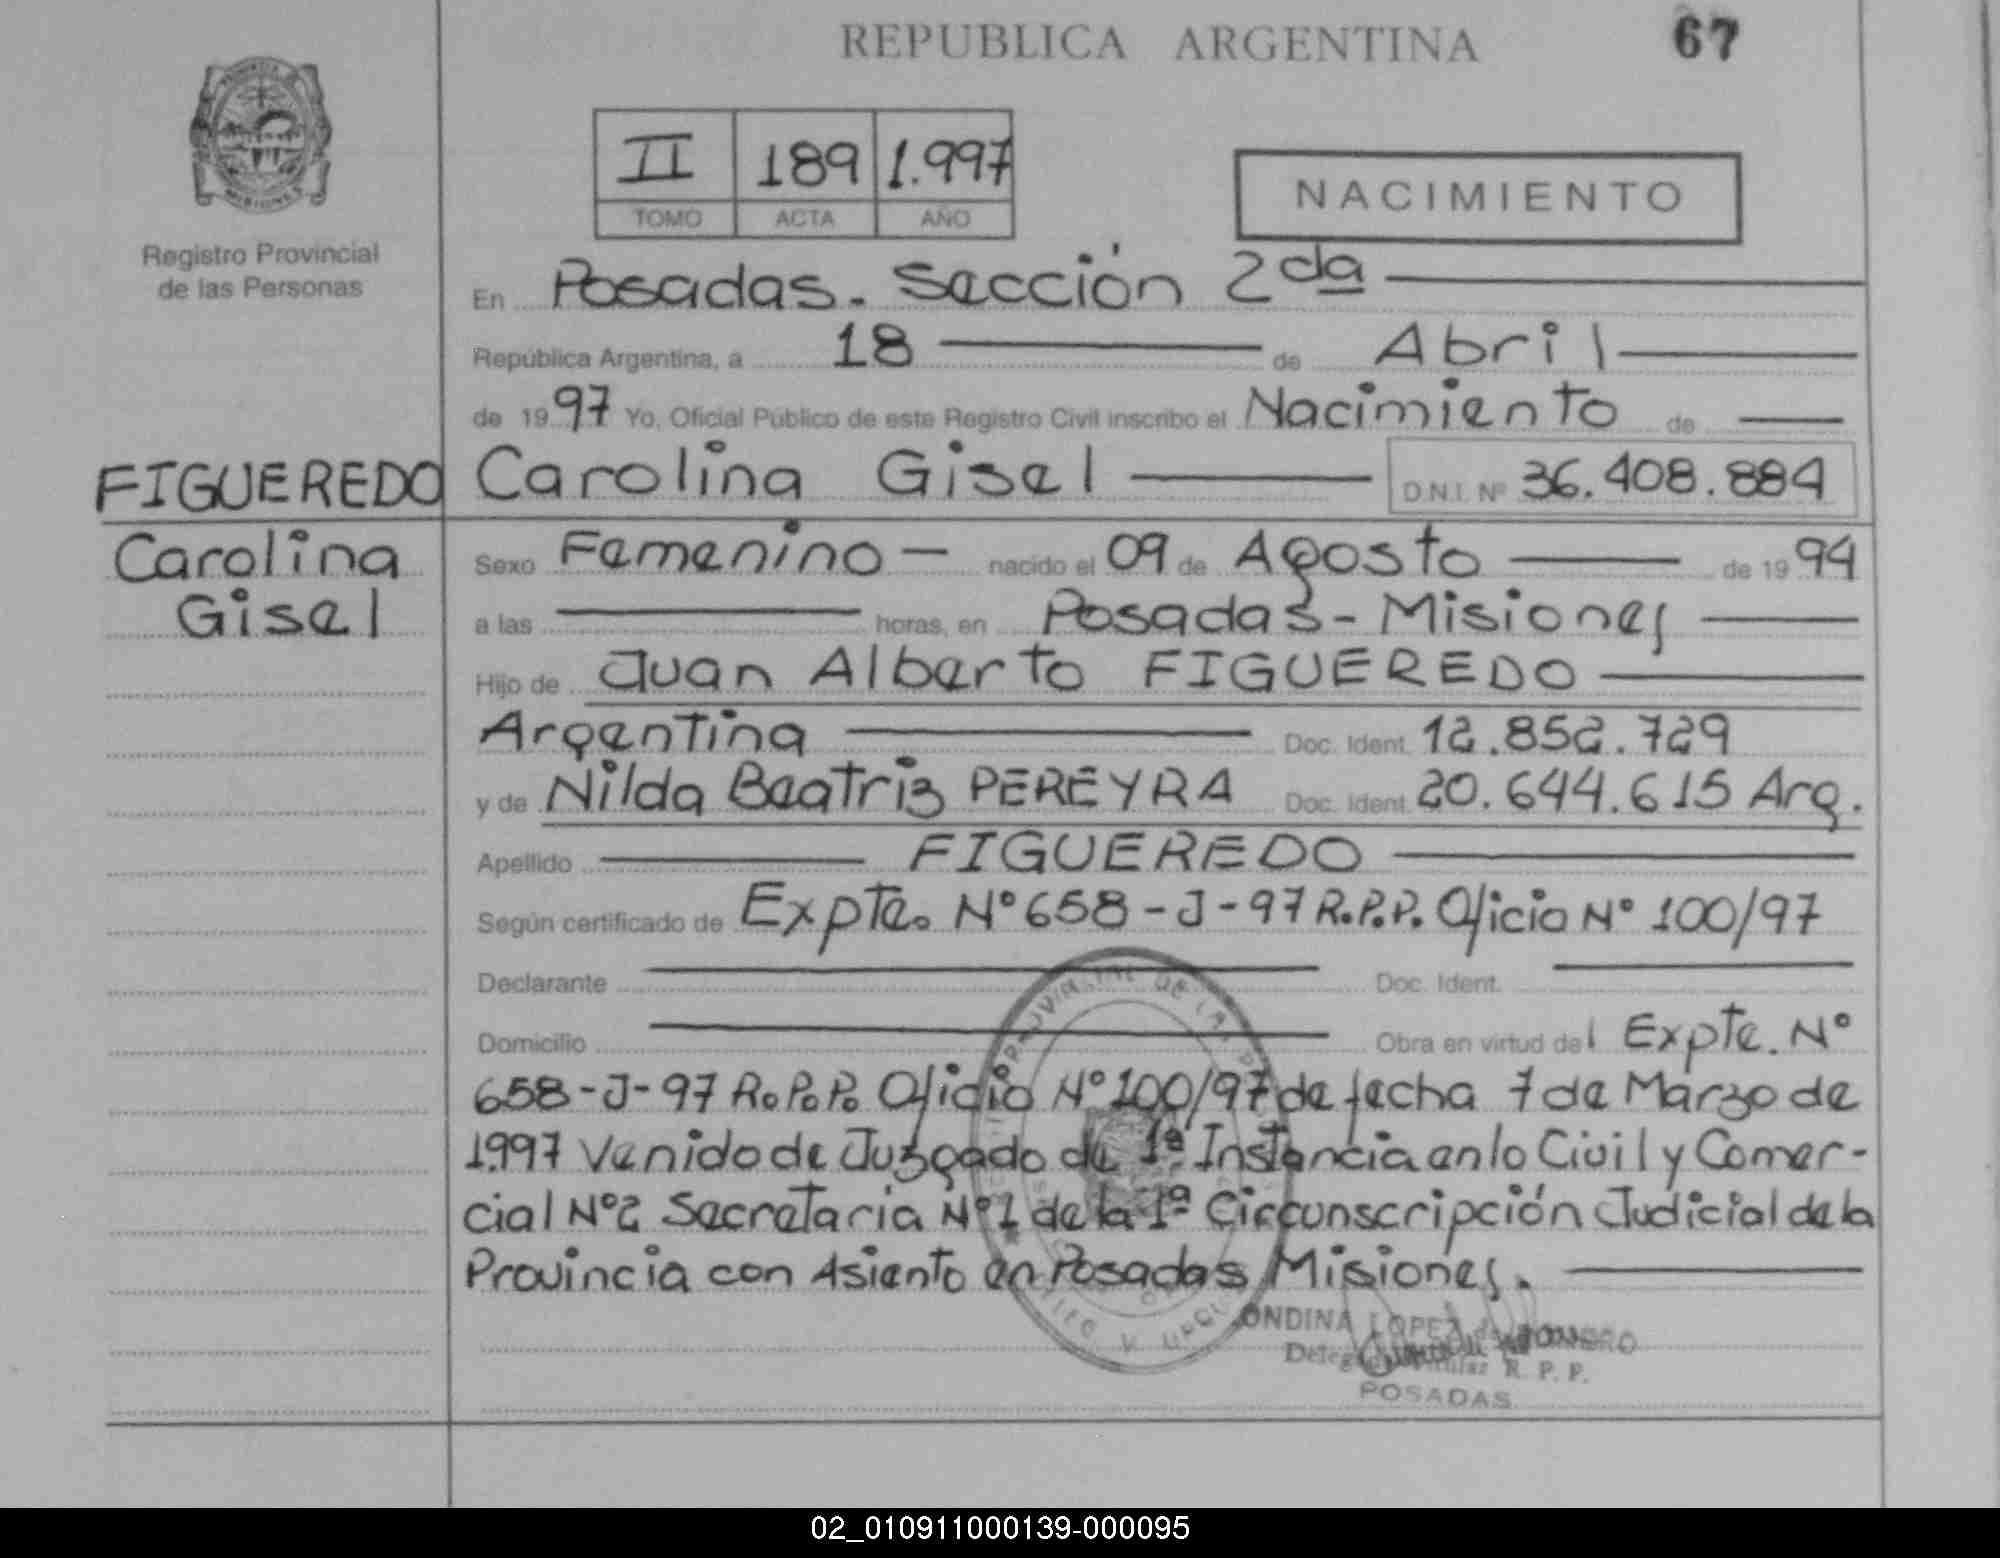 REPUBLICA ARGENTINA 67
II 189 1.997
TOMO ACTA AÑO
NACIMIENTO
Registro Provincial
de las Personas
En Posadas. Sección 2da
República Argentina, a 18 de Abril
de 1997 Yo, Oficial Público de este Registro Civil inscribo el Nacimiento de
FIGUEREDO
Carolina
Gisel
Carolina Gisel D.N.I. Nº 36.408.884
Sexo Femenino nacido el 09 de Agosto de 1994
a las horas, en Posadas - Misiones
Hijo de Juan Alberto FIGUEREDO
Argentina Doc. Ident. 12.852.729
y de Nilda Beatriz PEREYRA Doc. Ident. 20.644.615 Arg.
Apellido FIGUEREDO
Según certificado de Expte. Nº 658-J-97 R.P.P. Oficio Nº 100/97
Declarante Doc. Ident.
Domicilio Obra en virtud del Expte. Nº
658-J-97 R.P.P. Oficio Nº 100/97 de fecha 7 de Marzo de
1997 Venido de Juzgado de 1ª Instancia en lo Civil y Comer-
cial Nº2 Secretaria Nº1 de la 1ª Circunscripción Judicial de la
Provincia con Asiento en Posadas Misiones.
ONDINA LOPEZ de
R. P. P.
POSADAS
02_010911000139-000095